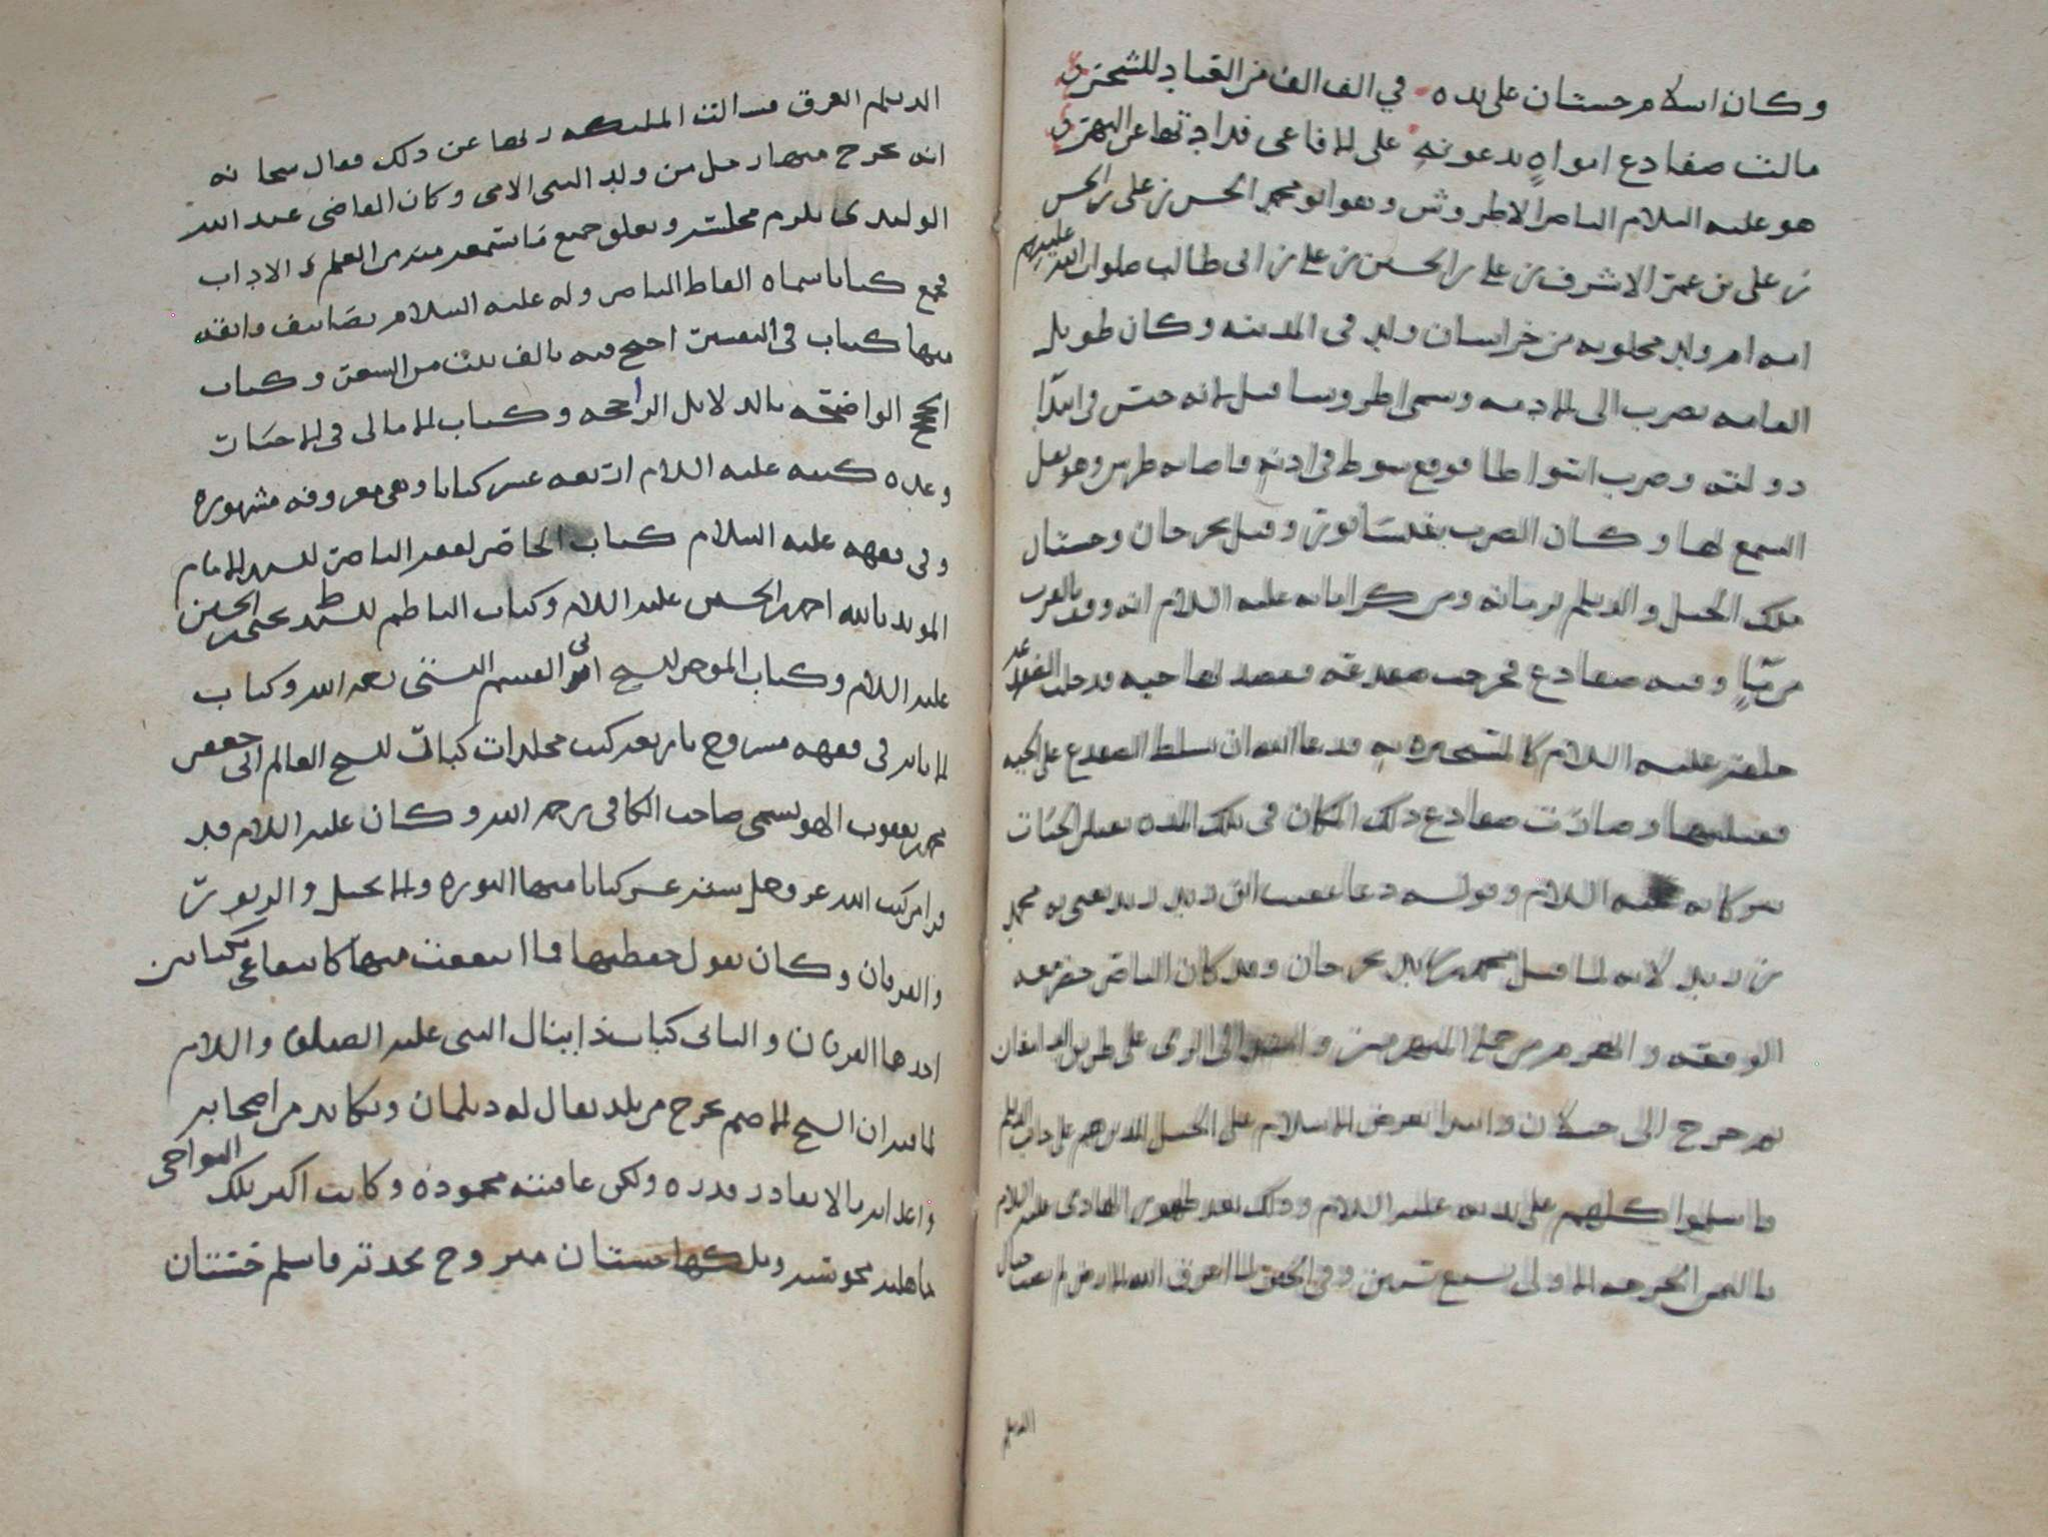 وكان اسلام حستان على يده في الف الف من العباد للشحتري
مالت ضفادع افواه يدعونه على الافاعي قد اجتها عن النهتري
هو عليه السلام الناصر الاطروش وهو ابو محمد الحسن بن علي بن الحسن
بن علي بن عمر الاشرف بن علي بن الحسين بن علي بن ابي طالب صلوات الله عليهم
امه ام ولد مجلوبه من خراسان ولد في المدينه وكان طويل
القامه يضرب الى الادمه وسمي اطروشا قيل لانه حبس في ابتدا
دولته وضرب اسواطا فوقع سوط في اذنه فاصابه طرش وهو ثقل
السمع لها وكان الضرب بنيسابور وقيل بجرجان وحستان
ملك الجيل والديلم لزمانه ومن كراماته عليه السلام انه ووقف بالقرب
من ماء وفيه ضفادع فخرجت ضفدعه فقصدتها حيه فدخلت
خلفه عليه السلام كالمستجيره به فدعا الله ان يسلط الضفدع على الحيه
فقتلتها وصارت ضفادع ذلك المكان في تلك المده تقتل الحيات
ببركاته عليه السلام وقوله دعا عقيب ابن زيد زيد يعني به محمد
بن زيد لانه لما قتل محمد بن زيد بجرجان وقد كان الناصر حضر معه
الوقعه وانهزم من جمله المنهزمين الى الري على طريق الدامغان
ثم خرج الى جيلان وابتدا بعرض الاسلام على الجيل الذين هم على دين الديلم
فاسلموا كلهم على يديه عليه السلام وذلك بعد ظهور الهادي عليه السلام
باليمن الخرجه الاولى بسبع سنين وفي الخبر لما اغرق الله الارض
الديلم
الديلم الغرق فسالت الملئكه ربها عن ذلك فقال سبحانه
انه يخرج منها رجل من ولد النبي الامي وكان القاضي عبد الله
الوليدي يلزم مجلسه ويعلق جميع ما يسمعه منه من العلم والاداب
فجمع كتابا سماه الفاظ الناصر وله عليه السلام تصانيف رايقه
منها كتاب في التفسير احتج فيه بالف بيت من الشعر وكتاب
الحجج الواضحه بالدلايل الراجحه وكتاب الامالي في الاخبارات
وعده كتبه عليه السلام اربعه عشر كتابا وهي معروفه مشهوره
وفي فقهه عليه السلام كتاب الحاصر لفقه الناصر للسيد الامام
المويد بالله احمد بن الحسين عليه السلام وكتاب الناظم للسيد ط يحيى بن الحسين
عليه السلام وكتاب الموجز للشيخ ابي القسم البستي رحمه الله وكتاب
الابانه في فقهه مشروح باربعه كتب مجلدات كبار للشيخ العالم ابي جعفر
محمد بن يعقوب الهوسمي صاحب الكافي رحمه الله وكان عليه السلام قد
قرا من كتب الله عز وجل سته عشر كتابا منها التوره والانجيل والزبور
والفرقان وكان يقول حفظتها فما انتفعت منها كانتفاعي بكتابين
احدهما الفرقان والثاني كتاب دانيال النبي عليه الصلوه والسلام
لما فيه ان الشيخ الاصم يخرج من بلد يقال له ديلمان ويكابد من اصحابه
واعدايه بالا يقادر قدره ولكن عاقبته محموده وكانت اكثر تلك النواحي
جاهليه مجوسيه وملكها حستان فخروج فاسلم حستان